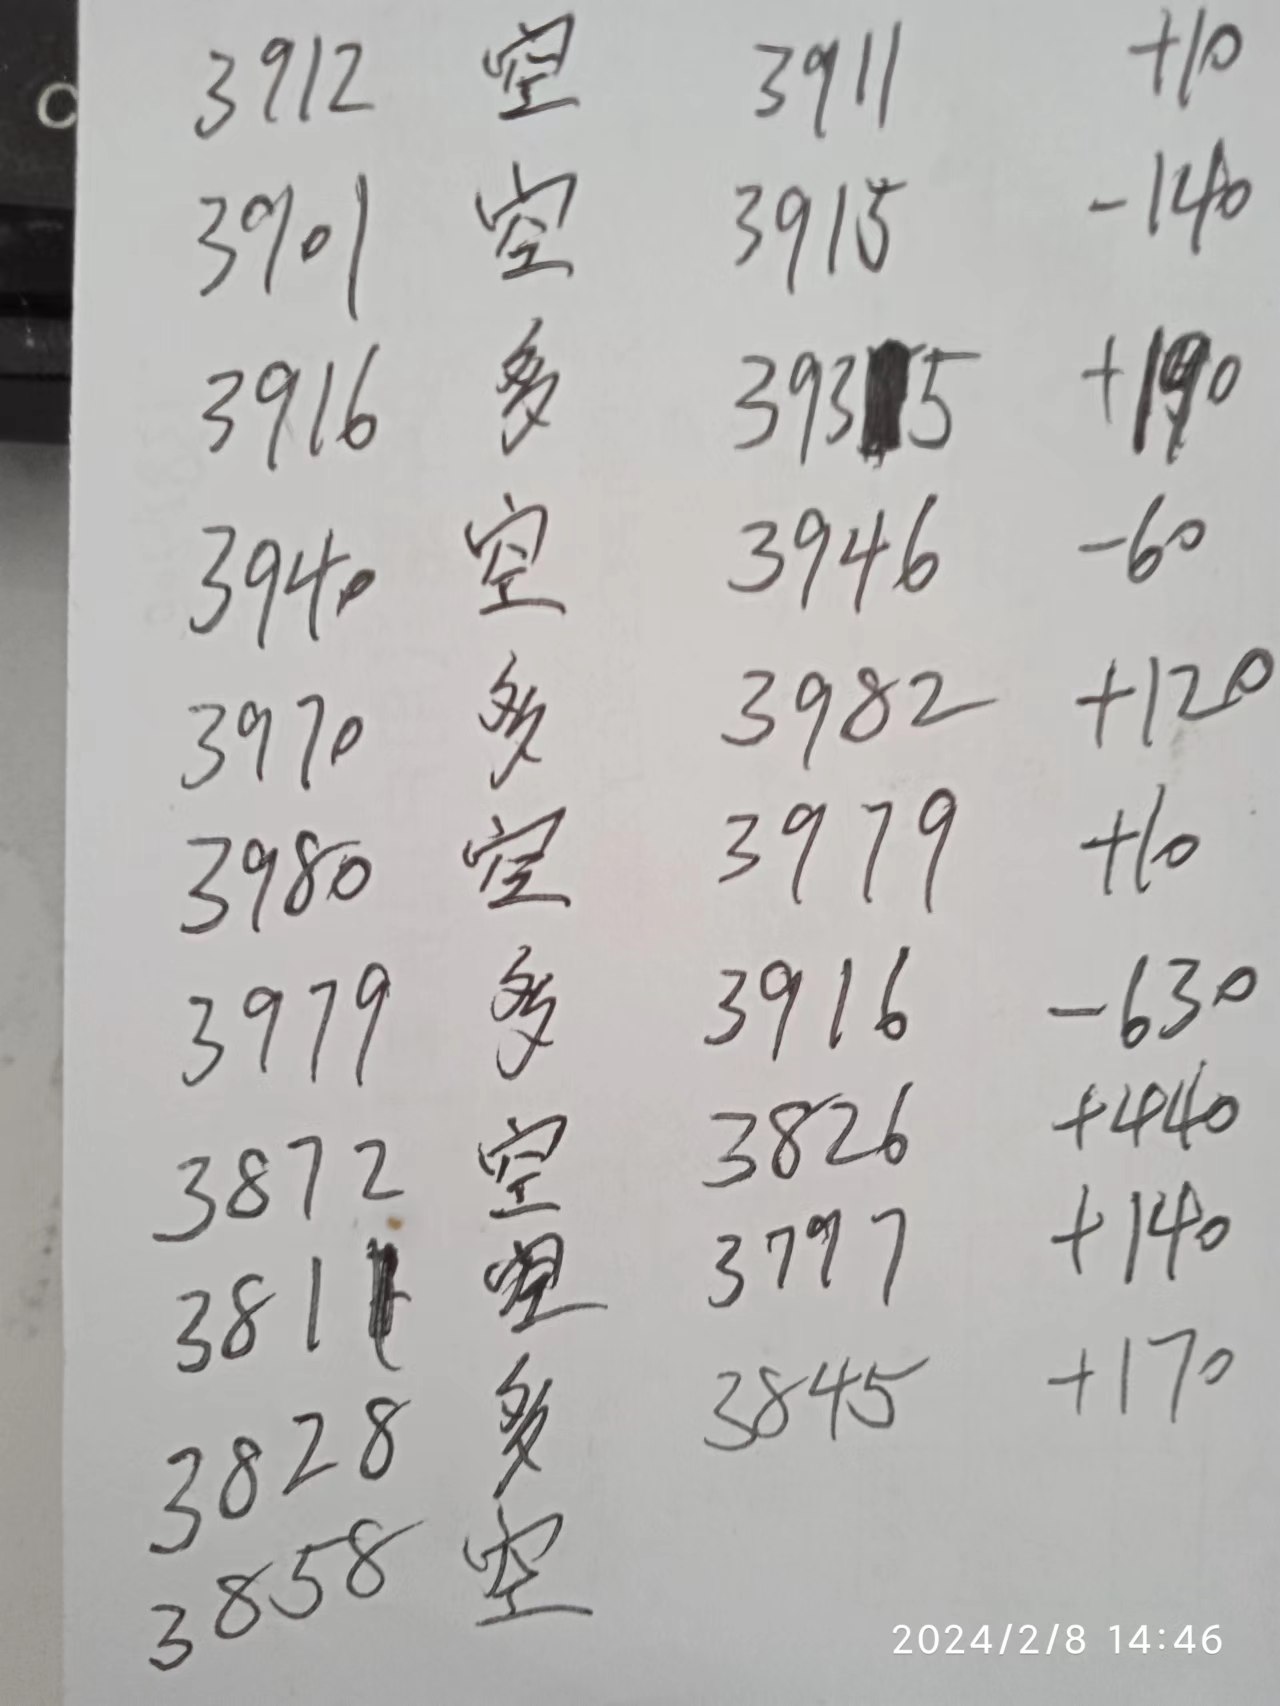 3912 空 3911 +10
3901 空 3915 -140
3916 多 3935 +190
3940 空 3946 -60
3970 多 3982 +120
3980 空 3979 +10
3979 多 3916 -630
3872 空 3826 +440
3811 空 3797 +140
3828 多 3845 +170
3858 空
2024/2/8 14:46